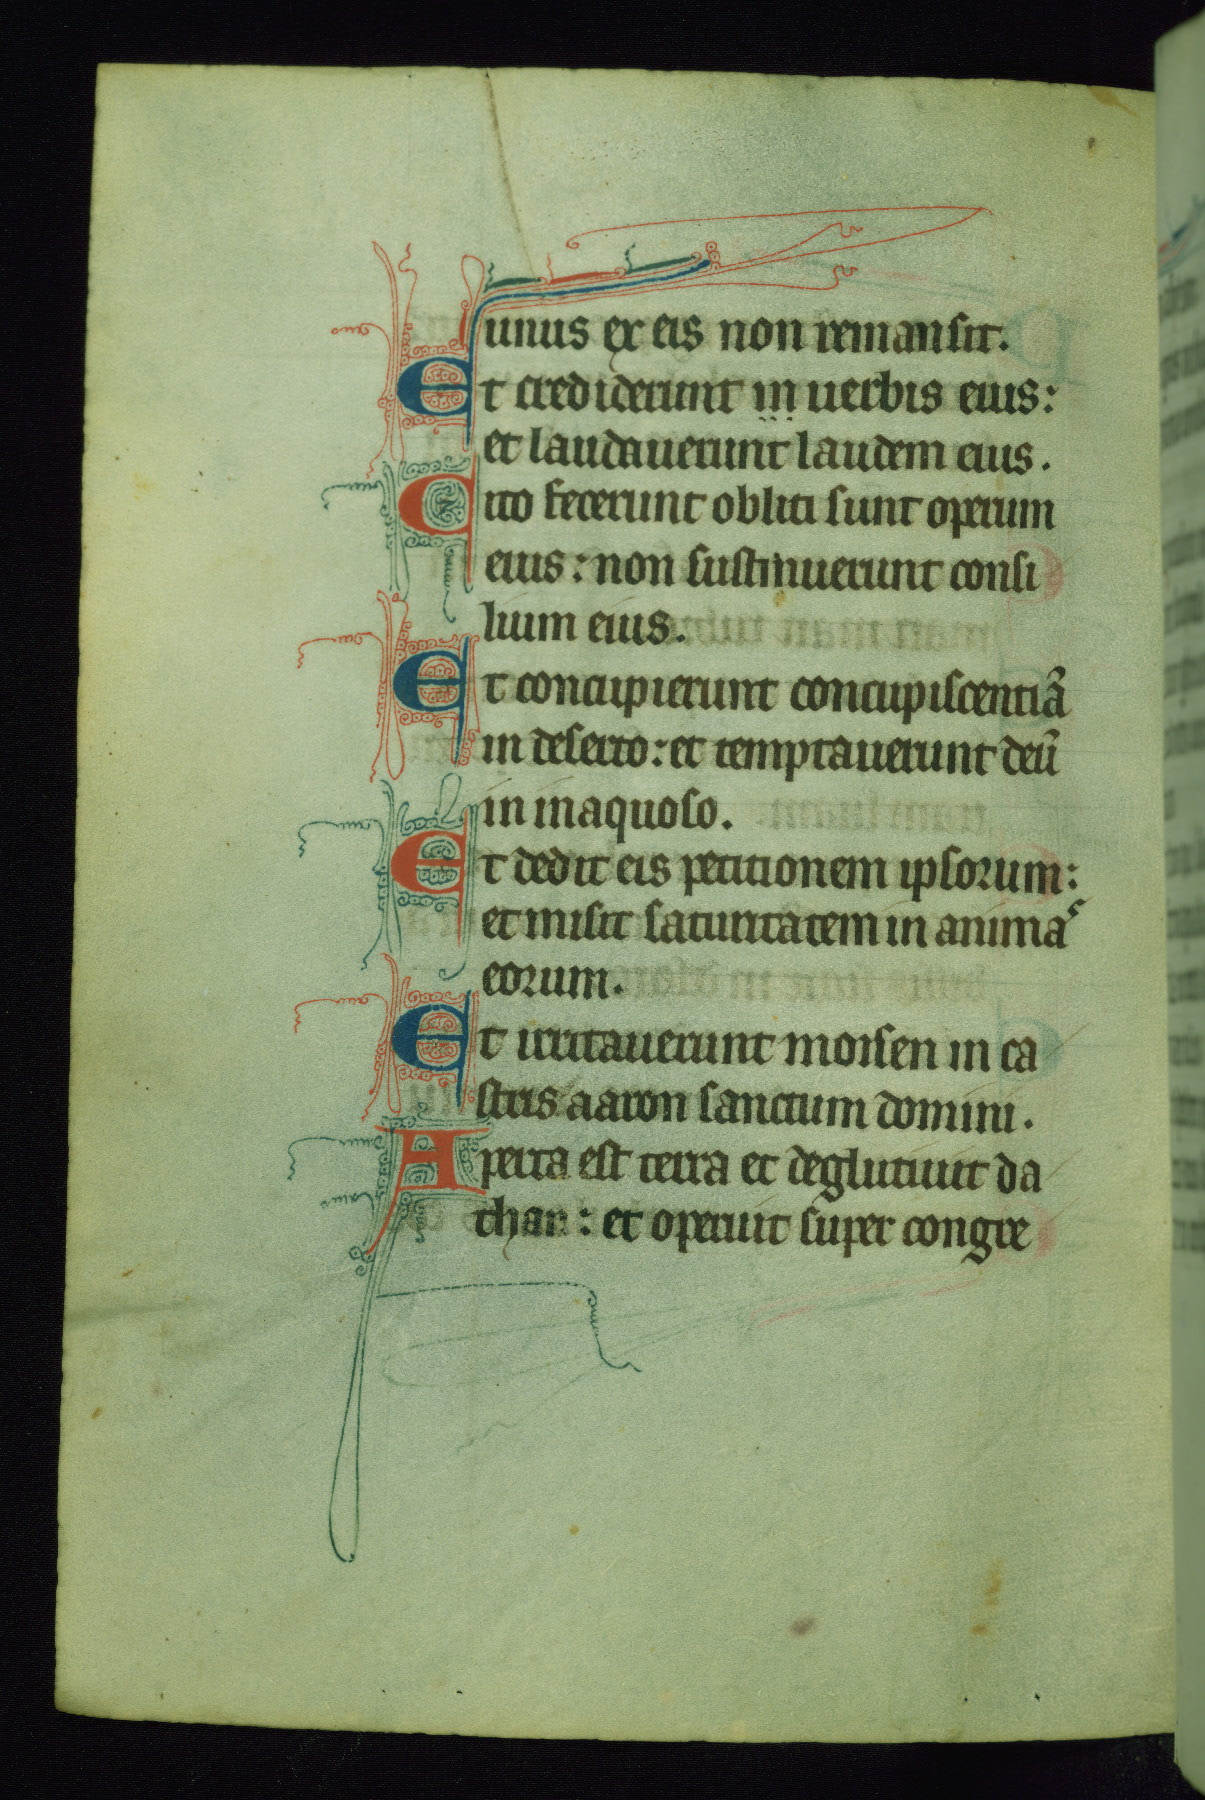 unus ex eis non remansit.
Et crediderunt in uerbis eius:
et laudauerunt laudem eius.
Cito fecerunt obliti sunt operum
eius: non sustinuerunt consi
lium eius.
Et concupierunt concupiscentiā
in deserto: et temptauerunt deū
in inaquoso.
Et dedit eis petitionem ipsorum:
et misit saturitatem in animas
eorum.
Et irritauerunt moisen in ca
stris aaron sanctum domini.
Aperta est terra et deglutiuit da
than: et operuit super congre